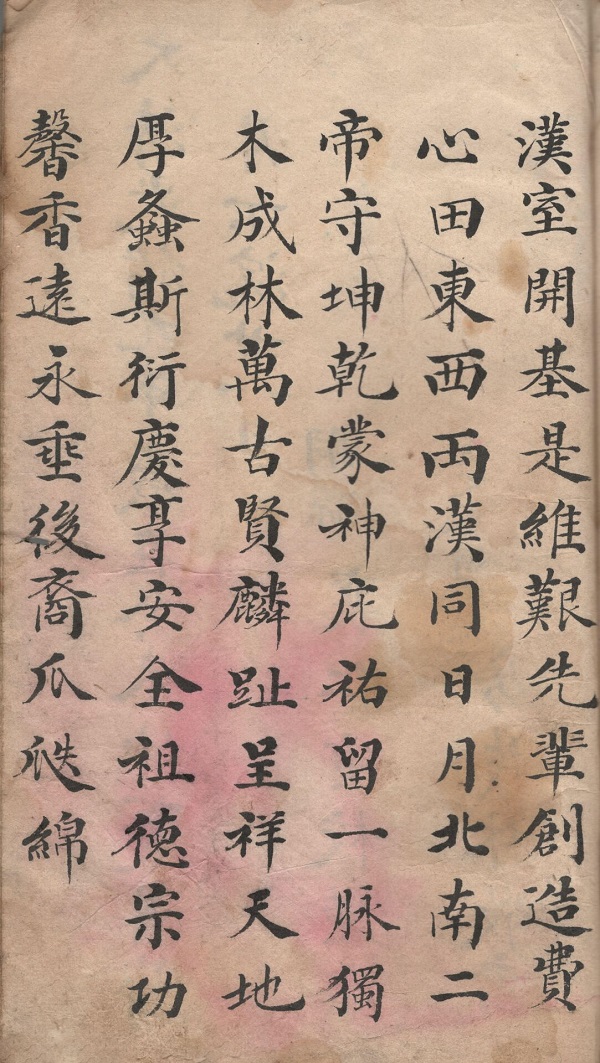 漢室開基是維艱先輩創造費
心田東西両漢同日月北南二
帝守坤乾蒙神庇祐留一脉獨
木成林萬古賢麟趾呈祥天地
厚螽斯衍慶享安全祖德宗功
馨香遠永垂後裔瓜瓞綿